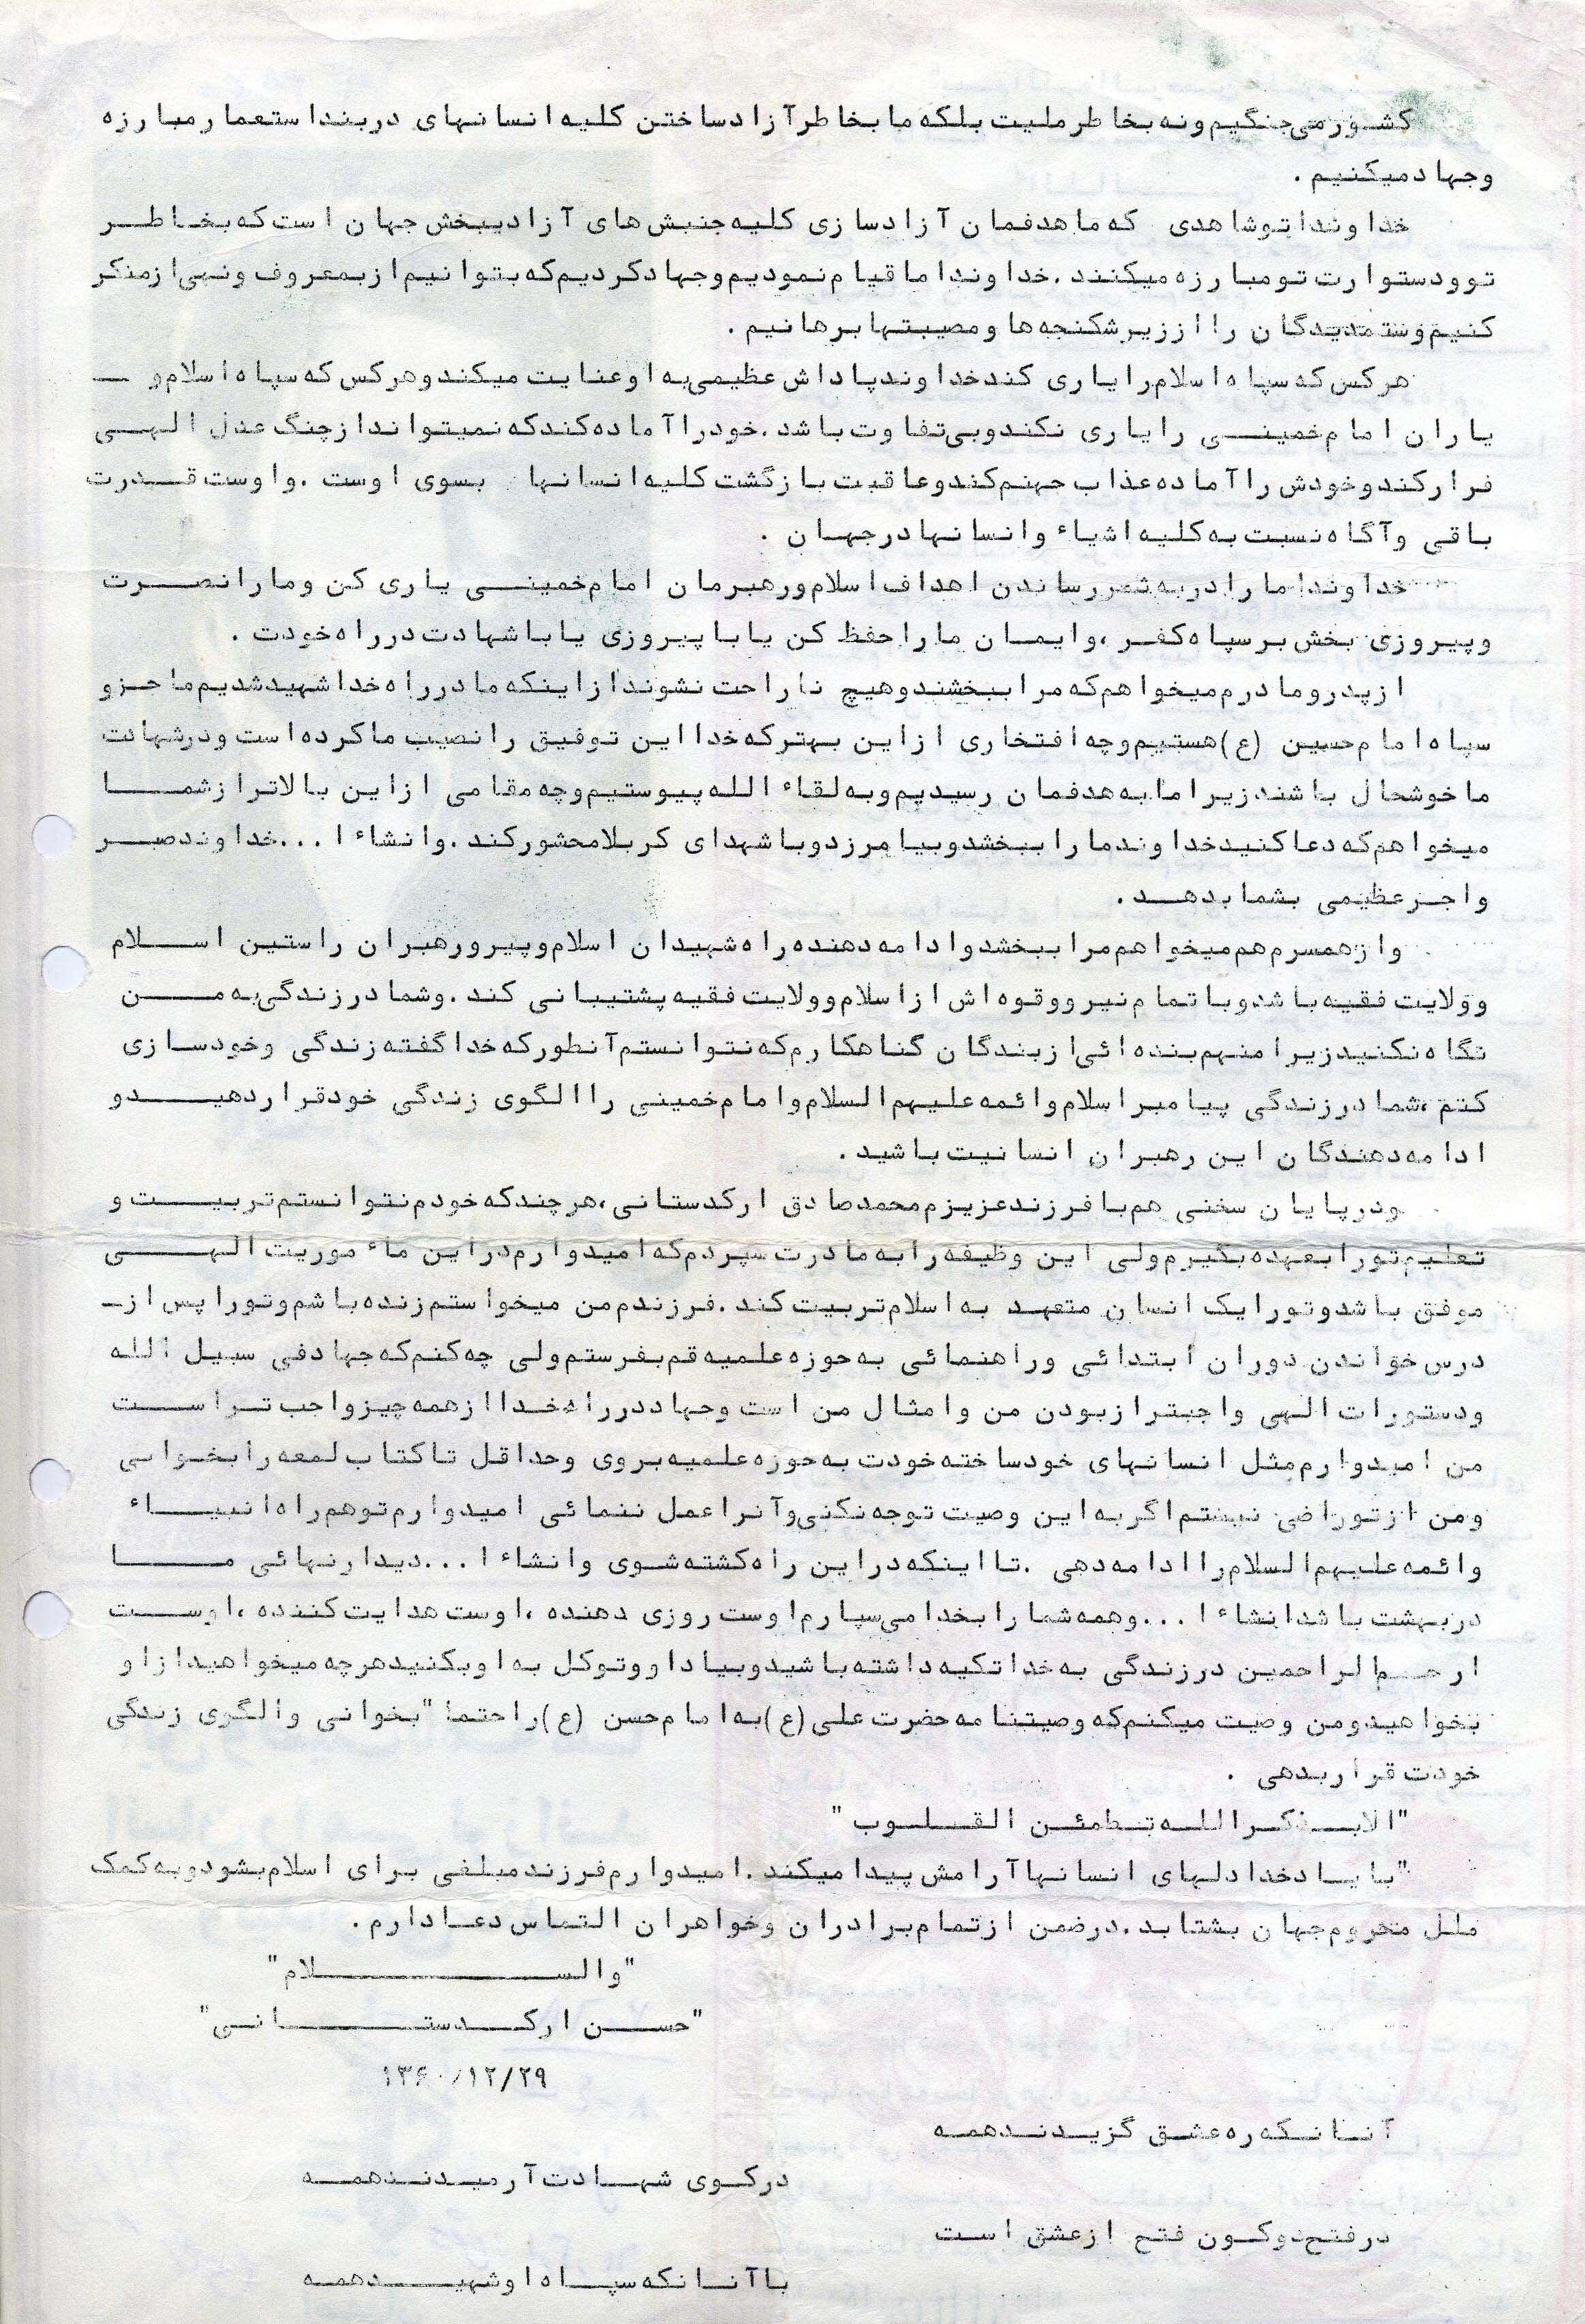 کشور می‌جنگیم و نه بخاطر ملیت بلکه ما بخاطر آزاد ساختن کلیه انسانهای در بند استعمار مبارزه
و جهاد میکنیم .
خداوندا تو شاهدی که ما هدفمان آزاد سازی کلیه جنبش های آزادیبخش جهان است که بخاطر
تو و دستوارت تو مبارزه میکنند . خداوندا ما قیام نمودیم و جهاد کردیم که بتوانیم از بمعروف و نهی از منکر
کنیم و ستمدیدگان را از زیر شکنجه ها و مصیبتها برهانیم .
هر کس که سپاه اسلام را یاری کند خداوند پاداش عظیمی به او عنایت میکند و هر کس که سپاه اسلام و
یاران امام خمینی را یاری نکند و بی تفاوت باشد . خود را آماده کند که نمیتواند از چنگ عدل الهی
فرار کند و خودش را آماده عذاب جهنم کند و عاقبت بازگشت کلیه انسانها بسوی اوست . و اوست قدرت
باقی و آگاه نسبت به کلیه اشیاء و انسانها در جهان .
خداوندا ما را در به ثمر رساندن اهداف اسلام و رهبرمان امام خمینی یاری کن و ما را نصرت
و پیروزی بخش بر سپاه کفر ، و ایمان ما را حفظ کن یا با پیروزی یا با شهادت در راه خودت .
از پدر و مادرم میخواهم که مرا ببخشند و هیچ ناراحت نشوند از اینکه ما در راه خدا شهید شدیم ما جزو
سپاه امام حسین (ع) هستیم و چه افتخاری از این بهتر که خدا این توفیق را نصیب ما کرده است و در شهادت
ما خوشحال باشند زیرا ما به هدفمان رسیدیم و به لقاء الله پیوستیم و چه مقامی از این بالاتر از شما
میخواهم که دعا کنید خداوند ما را ببخشد و بیامرزد و با شهدای کربلا محشور کند . و انشاء ا... خداوند صبر
و اجر عظیمی بشما بدهد .
و از همسرم هم میخواهم مرا ببخشد و ادامه دهنده راه شهیدان اسلام و پیرو رهبران راستین اسلام
و ولایت فقیه باشد و با تمام نیرو و قوه اش از اسلام و ولایت فقیه پشتیبانی کند . و شما در زندگی به من
نگاه نکنید زیرا منهم بنده ائی از بندگان گناهکارم که نتوانستم آنطور که خدا گفته زندگی و خود سازی
کنم ، شما در زندگی پیامبر اسلام و ائمه علیهم السلام و امام خمینی را الگوی زندگی خود قرار دهید و
ادامه دهندگان این رهبران انسانیت باشید .
و در پایان سخنی هم با فرزند عزیزم محمد صادق ارکدستانی ، هر چند که خودم نتوانستم تربیت و
تعلیم تو را بعهده بگیرم ولی این وظیفه را به مادرت سپردم که امیدوارم در این ماءموریت الهی
موفق باشد و تو را یک انسان متعهد به اسلام تربیت کند . فرزندم من میخواستم زنده باشم و تو را پس از
درس خواندن دوران ابتدائی و راهنمائی به حوزه علمیه قم بفرستم ولی چه کنم که جهاد فی سبیل الله
و دستورات الهی واجبتر از بودن من و امثال من است و جهاد در راه خدا از همه چیز واجب تر است
من امیدوارم مثل انسانهای خود ساخته خودت به حوزه علمیه بروی و حداقل تا کتاب لمعه را بخوانی
و من از تو راضی نیستم اگر به این وصیت توجه نکنی و آنرا عمل ننمائی امیدوارم تو هم راه انبیاء
و ائمه علیهم السلام را ادامه دهی . تا اینکه در این راه کشته شوی و انشاء ا... دیدار نهائی ما
در بهشت باشد انشاء ا... و همه شما را بخدا می سپارم اوست روزی دهنده ، اوست هدایت کننده ، اوست
ارحم الراحمین در زندگی به خدا تکیه داشته باشید و بیاد او و توکل به او بکنید هر چه میخواهید از او
بخواهید و من وصیت میکنم که وصیتنامه حضرت علی (ع) به امام حسن (ع) را حتما" بخوانی و الگوی زندگی
خودت قرار بدهی .
"الا بذکر الله تطمئن القلوب"
"با یاد خدا دلهای انسانها آرامش پیدا میکند . امیدوارم فرزند مبلغی برای اسلام بشود و به کمک
ملل محروم جهان بشتابد . در ضمن از تمام برادران و خواهران التماس دعا دارم .
"والسلام"
"حسن ارکدستانی"
۱۳۶۰/۱۲/۲۹
آنانکه ره عشق گزیدند همه
در کوی شهادت آرمیدند همه
در فتح دو کون فتح از عشق است
با آنانکه سپاه او شهیدهمه